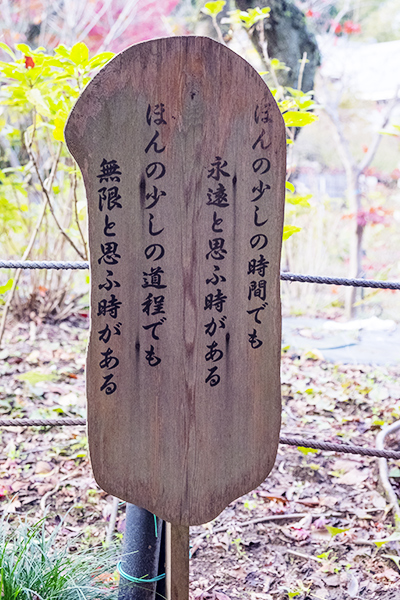 ほんの少しの時間でも
永遠と思ふ時がある
ほんの少しの道程でも
無限と思ふ時がある